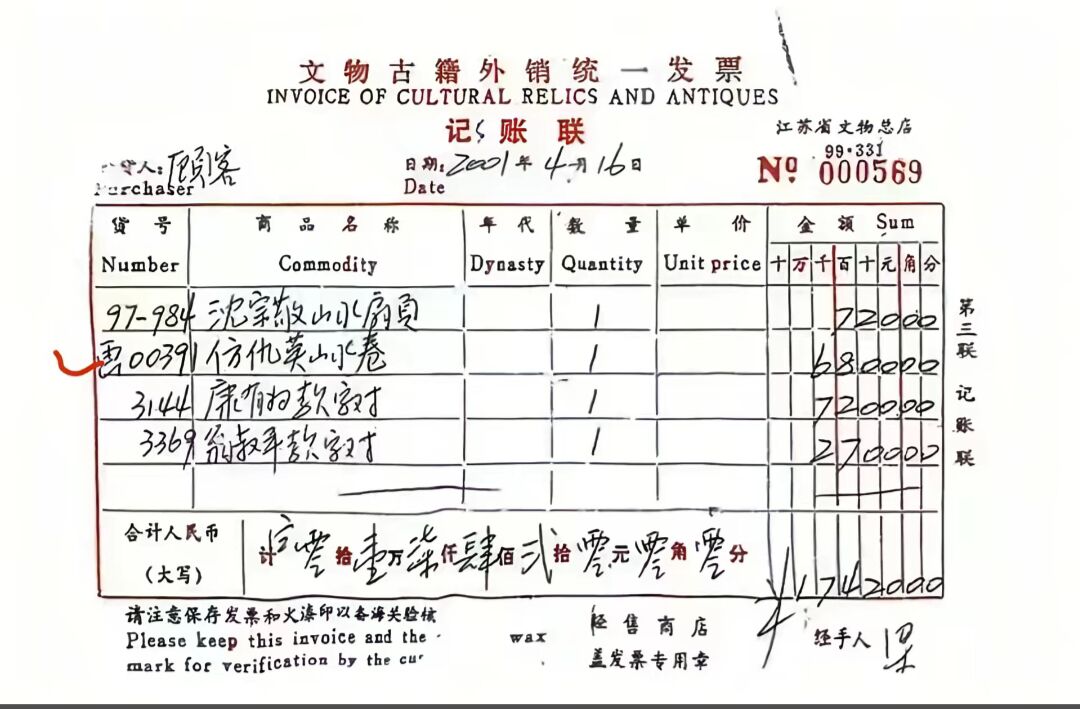 文物古籍外销统一发票
INVOICE OF CULTURAL RELICS AND ANTIQUES
记账联
江苏省文物总店
99·331
货人:顾客
Purchaser
日期:2001年4月16日
Date
Nº 000569
货号 商品名称 年代 数量 单价 金额 Sum
Number Commodity Dynasty Quantity Unit price 十万千百十元角分
97-984 沈宗敬山水扇页 1 72000
00391 仿仇英山水卷 1 680000
3144 康有为款字对 1 720000
3369 翁叔平款字对 1 270000
第三联 记账联
合计人民币
(大写)
计 零拾壹万柒仟肆佰贰拾零元零角零分 ¥1742000
请注意保存发票和火漆印以备海关验核
Please keep this invoice and the wax
mark for verification by the cu
经售商店
盖发票专用章
经手人